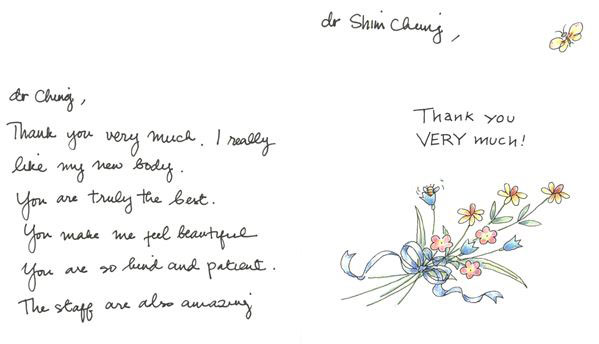 dr Ching,
Thank you very much. I really
like my new body.
You are truly the best.
You make me feel beautiful
You are so kind and patient.
The staff are also amazing
dr Shim Ching,
Thank you
VERY much!